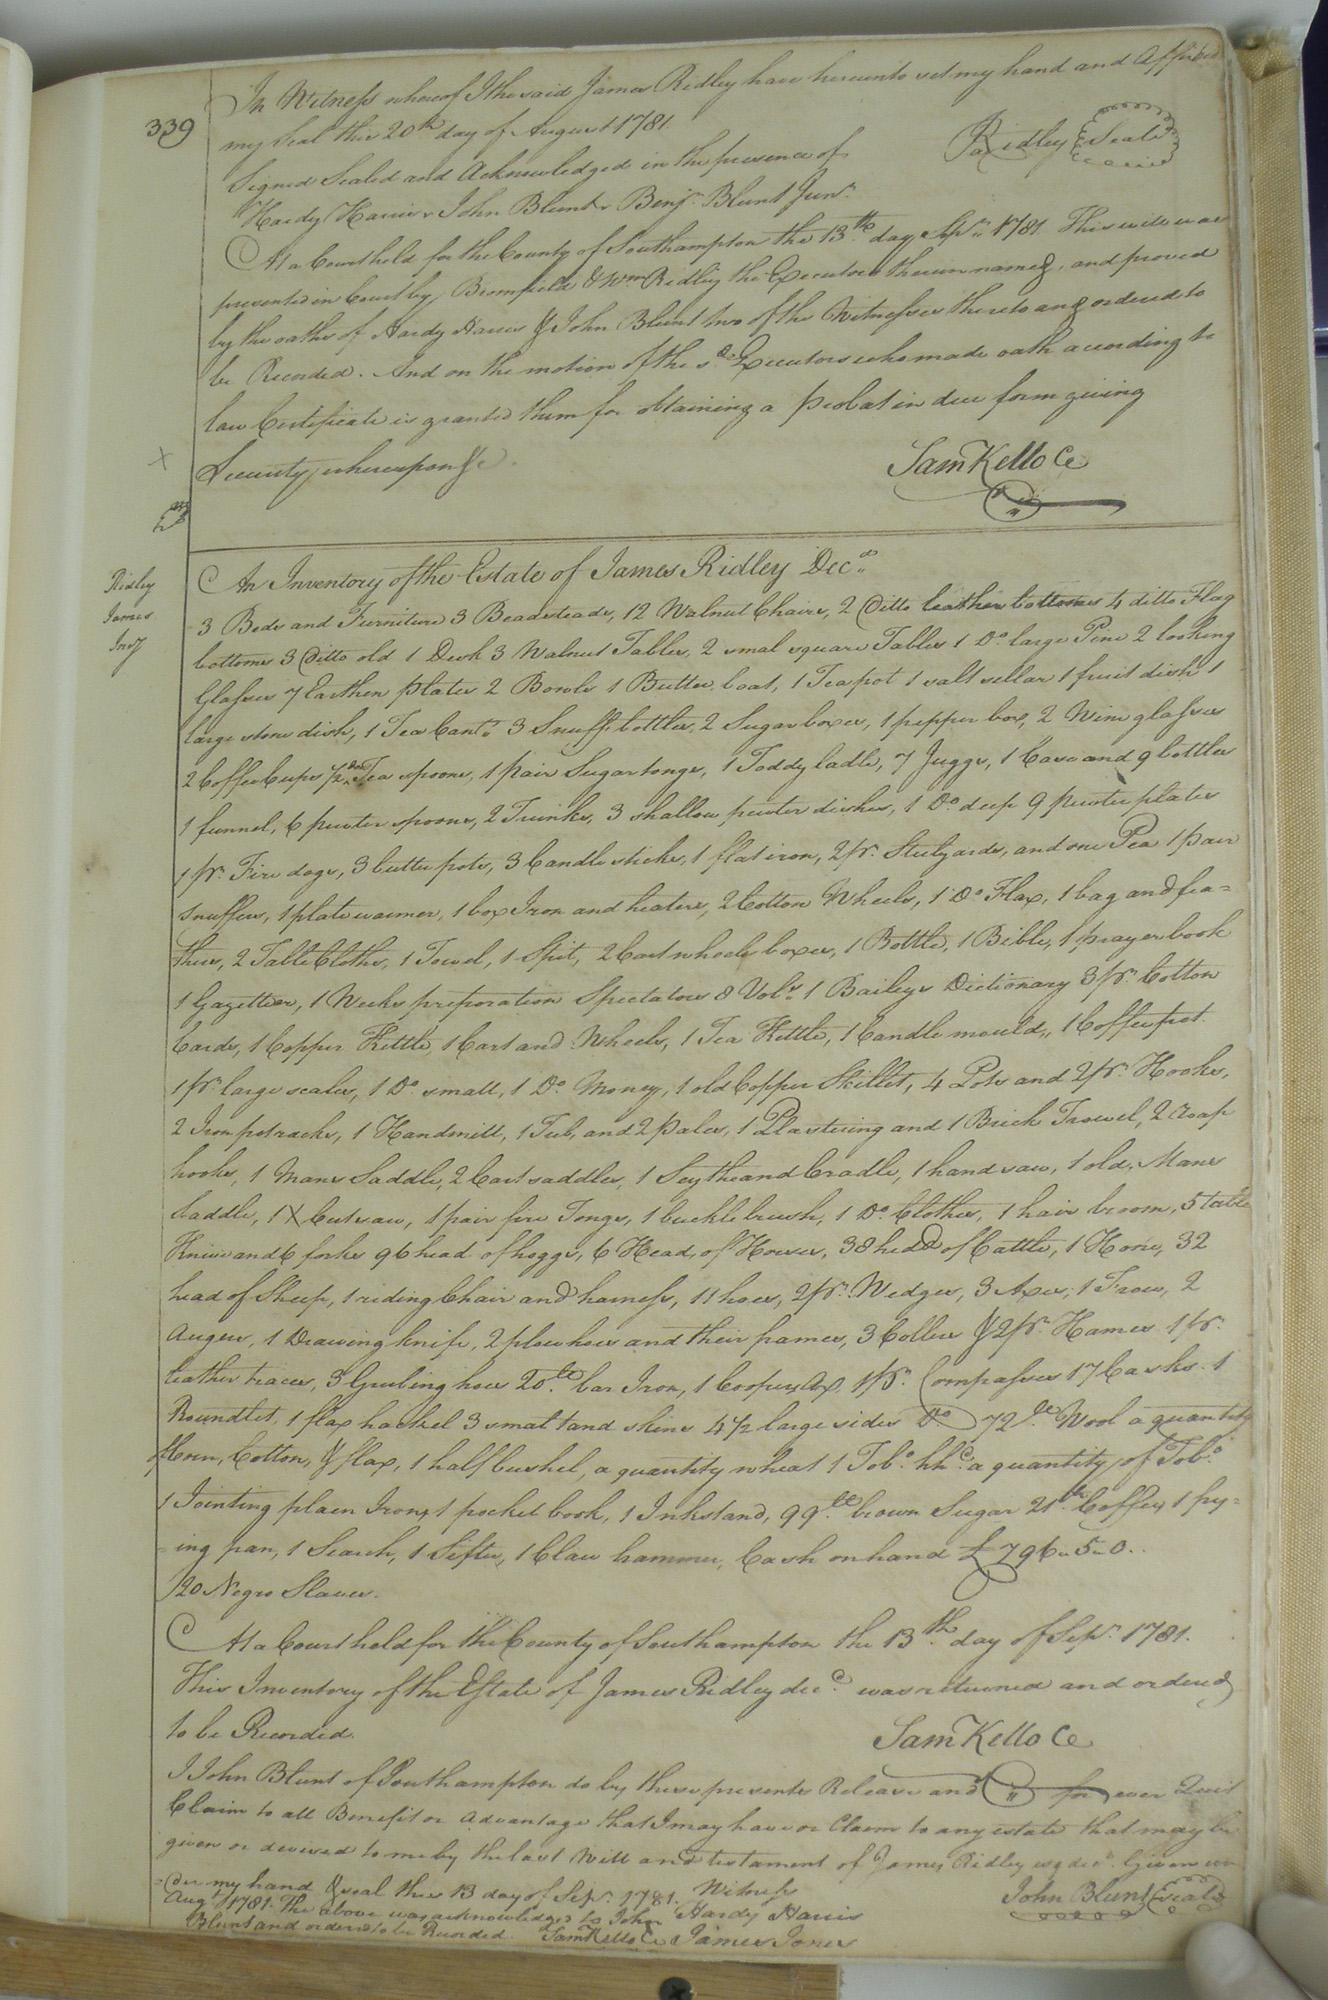 339
In Witness whereof I the said James Ridley have hereunto set my hand and Affixed
my Seal this 20th day of August 1781.
Signed Sealed and Acknowledged in the presence of
Jas Ridley (Seal)
Hardy Harris, John Blunt, Benjn Blunt Junr
At a Court held for the County of Southampton the 13th day Sepr 1781. This will was
presented in Court by Bromfield & Wm Ridley the Executors therein named, and proved
by the oaths of Hardy Harris & John Blunt two of the Witnesses thereto and ordered to
be Recorded. And on the motion of the sd Executors who made oath according to
law Certificate is granted them for obtaining a probat in due form giving
Security, whereupon &c.
Sam Kello Ce
Exd
Ridley
James
Invy
An Inventory of the Estate of James Ridley Decd
3 Beds and Furniture 3 Beadsteads, 12 Walnut Chairs, 2 Ditto leather bottoms 4 ditto Flag
bottoms 3 Ditto old 1 Desk 3 Walnut Tables, 2 smal square Tables 1 Do large Pine 2 looking
Glasses 7 Earthen plates 2 Bowls 1 Butter boat, 1 Teapot 1 salt sellar 1 fruit dish 1
large stone dish, 1 Tea Canr 3 Snuff bottles, 2 Sugar boxes, 1 pepper box, 2 Wine glasses
2 Coffee Cups 1/2 Dn Tea spoons, 1 pair Sugar tongs, 1 Toddy ladle, 7 Juggs, 1 Case and 9 bottles
1 funnel, 6 pewter spoons, 2 Trunks, 3 shallow pewter dishes, 1 Do deep 9 pewter plates
1 pr Fire dogs, 3 butter pots, 3 Candlesticks, 1 flat iron, 2 pr Stilyards, and one Pea 1 pair
snuffers, 1 plate warmer, 1 box Iron and heaters, 2 Cotton Wheels, 1 Do Flax, 1 bag and fea=
thers, 2 Table Cloths, 1 Towel, 1 Spit, 2 Cart wheele boxes, 1 Bottle, 1 Bible, 1 prayer book
1 Gazetteer, 1 Weeks preporation Spectators 8 Vols 1 Baileys Dictionary 3 pr Cotton
Cards, 1 Copper Kettle, 1 Cart and Wheels, 1 Tea Kettle, 1 Candle mould, 1 Coffee pot.
1 pr large scales, 1 Do small, 1 Do Money, 1 old Copper Skillet, 4 Pots and 2 pr Hooks,
2 Iron potracks, 1 Handmill, 1 Tub, and 2 pales, 1 Plastering and 1 Brick Trowel, 2 reap
hooks, 1 Mans Saddle, 2 Cart saddles, 1 Scythe and Cradle, 1 hand saw, 1 old, Mans
Saddle, 1 X Cut saw, 1 pair fire Tongs, 1 buckle brush, 1 Do Clothes, 1 hair broom, 5 table
Knives and 6 forks 96 head of hoggs, 6 Head, of Horses, 38 head of Cattle, 1 Hone, 32
head of Sheep, 1 riding Chair and harness, 11 hoes, 2 pr Wedges, 3 Axes, 1 Frow, 2
Augers, 1 Drawing knife, 2 plow hoes and their frames, 3 Collers & 2 pr Hames 1 pr
leather traces, 3 Grubing hoes 20 lb bar Iron, 1 Coopers Ax, 1 pr Compasses 17 Casks 1
Roundlet, 1 flax hackel 3 small tand skins 4 1/2 large sides Do 72 lb Wool a quantity
of Corn, Cotton, & flax, 1 half bushel, a quantity wheat 1 Tobo hhd a quantity of Tobo
1 Jointing plain Iron, 1 pocket book, 1 Inkstand, 99 lb brown Sugar 21 lb Coffey 1 fry=
=ing pan, 1 Search, 1 Sifter, 1 Claw hammer, Cash on hand £796.5.0.
20 Negro Slaves.
At a Court held for the County of Southampton the 13th day of Sepr 1781.
This Inventory of the Estate of James Ridley decd was returned and ordered
to be Recorded.
Sam Kello Ce
I John Blunt of Southampton do by these presents Release and for ever Quit
Claim to all Benefit or Advantage that I may have or Claim to any estate that may be
given or devised to me by the last Will and testament of James Ridley esq decd. Given un
=der my hand & seal this 13 day of Sepr 1781. Witness
John Blunt (seal)
Augt 1781. The above was acknowledged to John Hardy Harris
Blunt and ordered to be Recorded. Sam Kello Ce James Jones